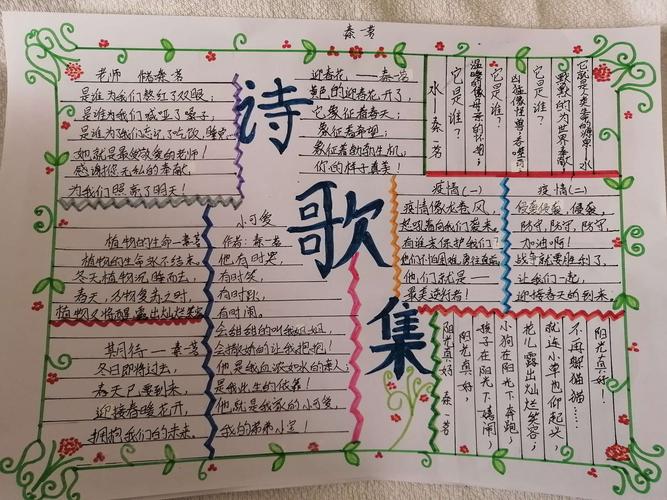 秦芳
诗
歌
集
老师 储秦芳
是谁为我们熬红了双眼；
是谁为我们喊哑了嗓子；
是谁为我们忘记了吃饭，睡觉
她就是最敬爱的老师！
感谢你无私的奉献，
为我们照亮了明天！
迎春花，——秦芳
黄色的迎春花开了，
它象征着春天；
象征着希望；
象征着勃勃生机，
你的样子真美！
它就是人类生命的源泉：水
默默的为世界奉献，
它是谁？
凶猛像怪兽；
它是谁？
温暖的像母亲的怀抱；
它是谁？
水——秦芳
植物的生命—秦芳
植物的生命永不结束。
冬天植物沉睡而去，
春天，万物复苏之时，
植物又将醒露出灿烂笑容
期待——秦芳
冬日即将过去，
春天已要到来，
迎接春暖花开，
拥抱我们的未来。
小可爱
作者：秦芳
他，有时哭，
有时笑，
有时跳，
有时闹。
会甜甜的叫我姐姐，
会撒娇的让我抱抱！
他是我血浓如水的亲人；
是我此生的依靠！
他就是我家的小可爱，
我的弟弟小宝！
疫情（一）
疫情像龙卷风，
起吼着向我们袭来。
有谁来保护我们？
他们不怕困难，勇往直前
他们就是——
最美逆行者！
疫情（二）
侵袭侵袭，侵袭，
防守，防守，防守，
加油啊！
战争就要胜利了，
让我们一起，
迎接春天的到来。
阳光真好！
不再躲猫猫……
就连小草也仰起头，
花儿露出灿烂笑容；
小狗在阳光下奔跑，
孩子在阳光下嬉闹
阳光真好，
阳光真好 秦芳